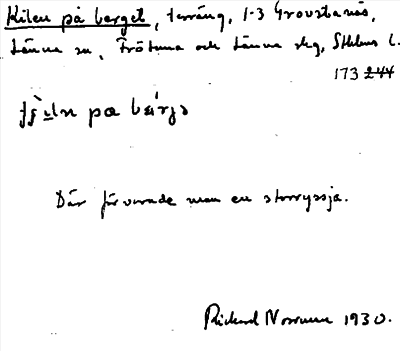 Kilen på berget, terräng, 1-3 Grovstanäs,
Länna sn, Frötuna och Länna skg, Sthlms l.
173 244
pa
Där förvarade man en storryssja.
Rickard 1930.